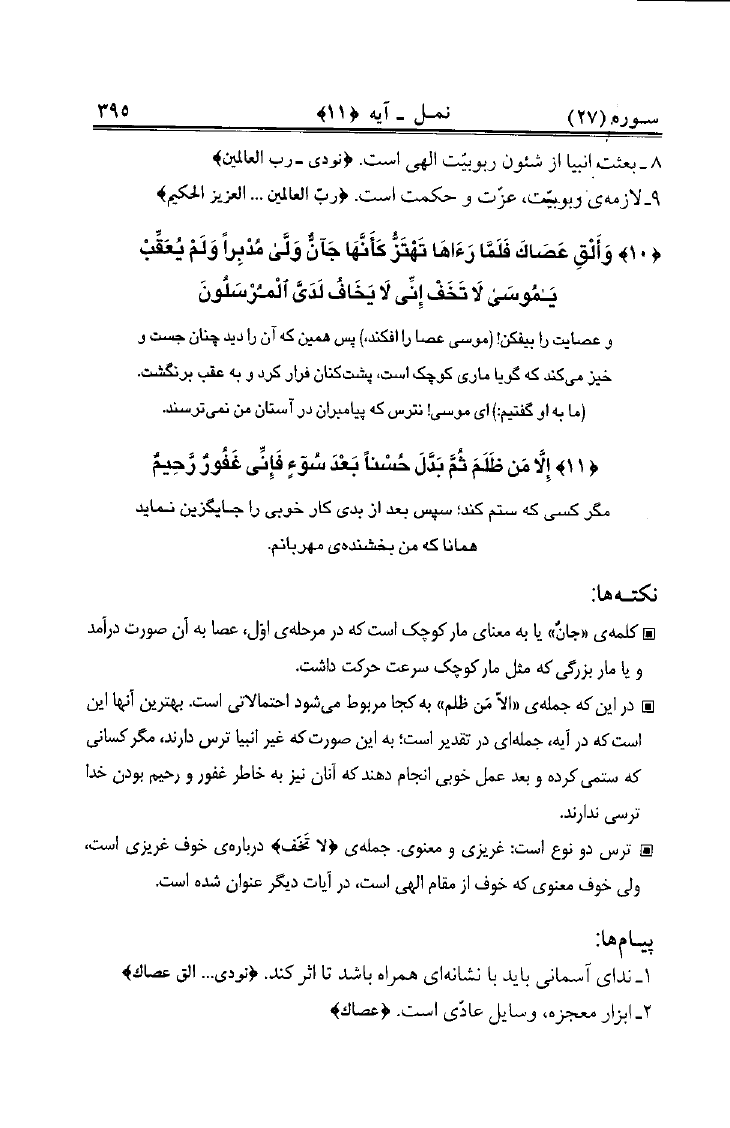 سوره (۲۷) نمل ـ آیه ﴿۱۱﴾ ۳۹۵
۸ ـ بعثت انبیا از شئون ربوبیّت الهی است. ﴿نودی ـ رب العالمین﴾
۹ـ لازمه‌ی ربوبیّت، عزّت و حکمت است. ﴿ربّ العالمین ... العزیز الحکیم﴾
﴿۱۰﴾ وَأَلْقِ عَصَاكَ فَلَمَّا رَءَاهَا تَهْتَزُّ كَأَنَّهَا جَآنٌّ وَلَّىٰ مُدْبِراً وَلَمْ يُعَقِّبْ
يَـٰمُوسَىٰ لَا تَخَفْ إِنِّى لَا يَخَافُ لَدَىَّ ٱلْمُرْسَلُونَ
و عصایت را بیفکن! (موسی عصا را افکند،) پس همین که آن را دید چنان جست و
خیز می‌کند که گویا ماری کوچک است، پشت‌کنان فرار کرد و به عقب برنگشت.
(ما به او گفتیم:) ای موسی! نترس که پیامبران در آستان من نمی‌ترسند.
﴿۱۱﴾ إِلَّا مَن ظَلَمَ ثُمَّ بَدَّلَ حُسْناً بَعْدَ سُوٓءٍ فَإِنِّى غَفُورٌ رَّحِيمٌ
مگر کسی که ستم کند؛ سپس بعد از بدی کار خوبی را جایگزین نماید
همانا که من بخشنده‌ی مهربانم.
نکته‌ها:
▣ کلمه‌ی «جانّ» یا به معنای مار کوچک است که در مرحله‌ی اوّل، عصا به آن صورت درآمد
و یا مار بزرگی که مثل مار کوچک سرعت حرکت داشت.
▣ در این که جمله‌ی «الاّ مَن ظلم» به کجا مربوط می‌شود احتمالاتی است. بهترین آنها این
است که در آیه، جمله‌ای در تقدیر است؛ به این صورت که غیر انبیا ترس دارند، مگر کسانی
که ستمی کرده و بعد عمل خوبی انجام دهند که آنان نیز به خاطر غفور و رحیم بودن خدا
ترسی ندارند.
▣ ترس دو نوع است: غریزی و معنوی. جمله‌ی ﴿لا تَخَف﴾ درباره‌ی خوف غریزی است،
ولی خوف معنوی که خوف از مقام الهی است، در آیات دیگر عنوان شده است.
پیام‌ها:
۱ـ ندای آسمانی باید با نشانه‌ای همراه باشد تا اثر کند. ﴿نودی... الق عصاك﴾
۲ـ ابزار معجزه، وسایل عادّی است. ﴿عصاك﴾